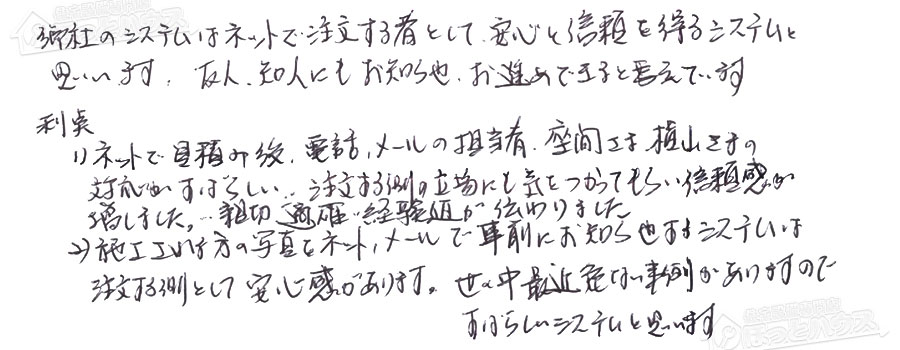 御社のシステムはネットで注文する者として、安心と信頼を得るシステムと
思います。友人、知人にもお知らせ、お進めできると考えています
利点
1)ネットで見積み後、電話、メールの担当者、座間さま 横山さまの
対応がすばらしい。注文する側の立場にも気をつかってもらい信頼感が
増しました。親切 適確 経験値が伝わりました。
2)施工される方の写真をネット、メールで事前にお知らせするシステムは
注文する側として安心感があります。世の中最近危ない事例がありますので
すばらしいシステムと思います